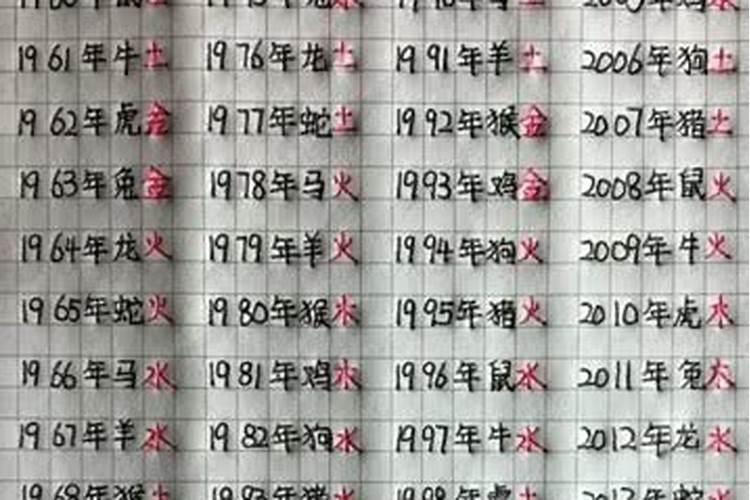 1961年牛土 1976年龙土 1991年羊土 2006年狗土
1962年虎金 1977年蛇土 1992年猴金 2007年猪土
1963年兔金 1978年马火 1993年鸡金 2008年鼠火
1964年龙火 1979年羊火 1994年狗火 2009年牛火
1965年蛇火 1980年猴木 1995年猪火 2010年虎木
1966年马水 1981年鸡木 1996年鼠水 2011年兔木
1967年羊水 1982年狗水 1997年牛水 2012年龙水